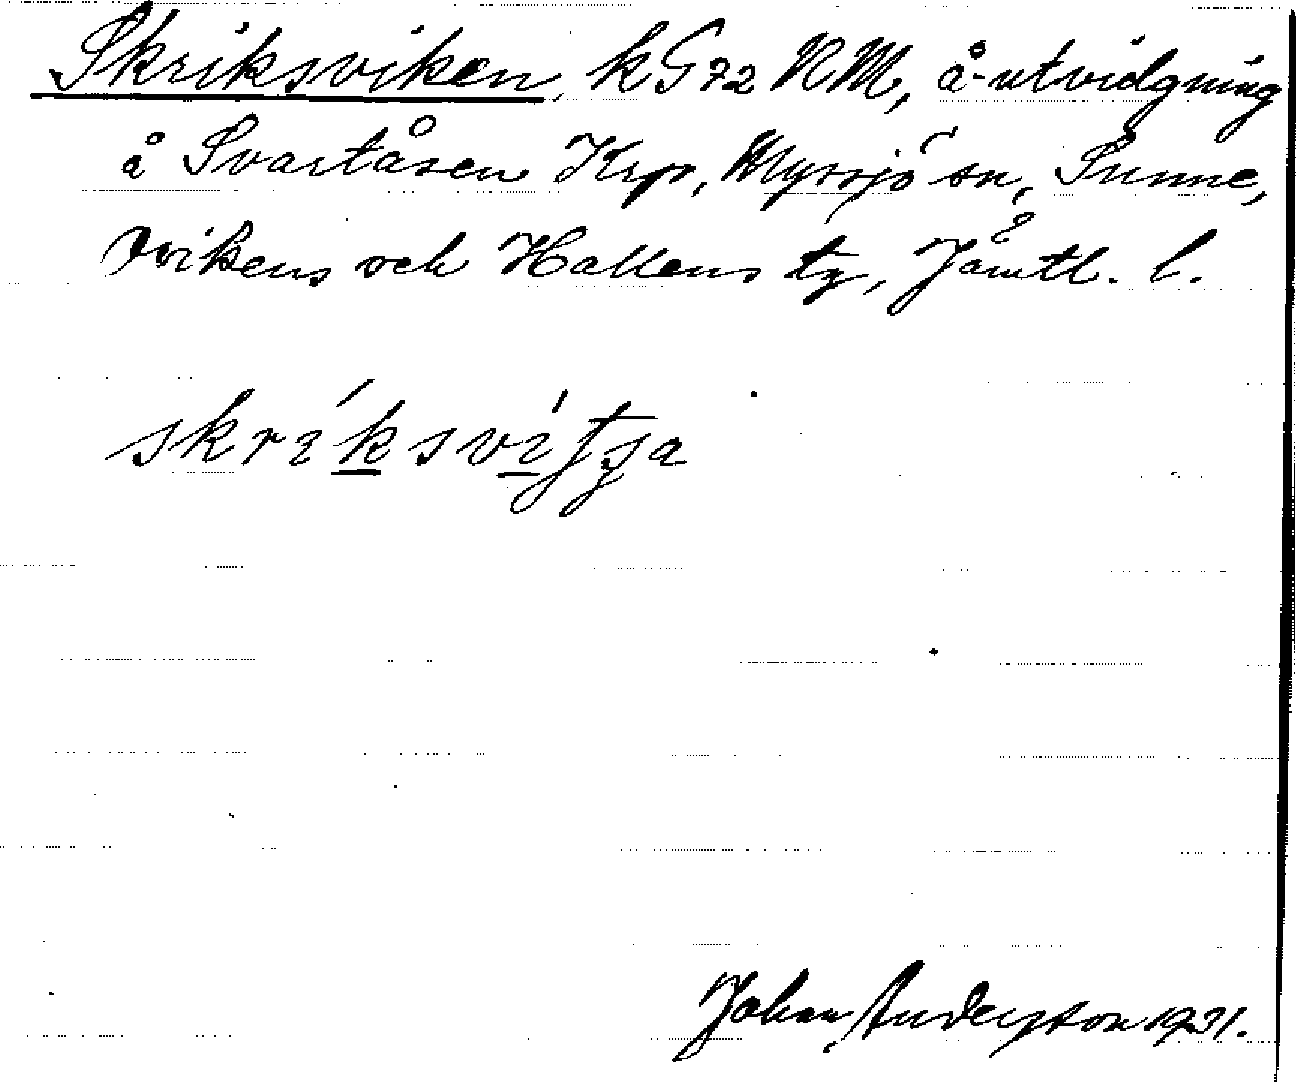 Skriksviken, k G 72 NM, å-utvidgning
å Svartåsen Krp, Myssjö sn, Sunne,
Ovikens och Hallens tg, Jämtl. l.
skrikksvi
Johan Anderson 1931.